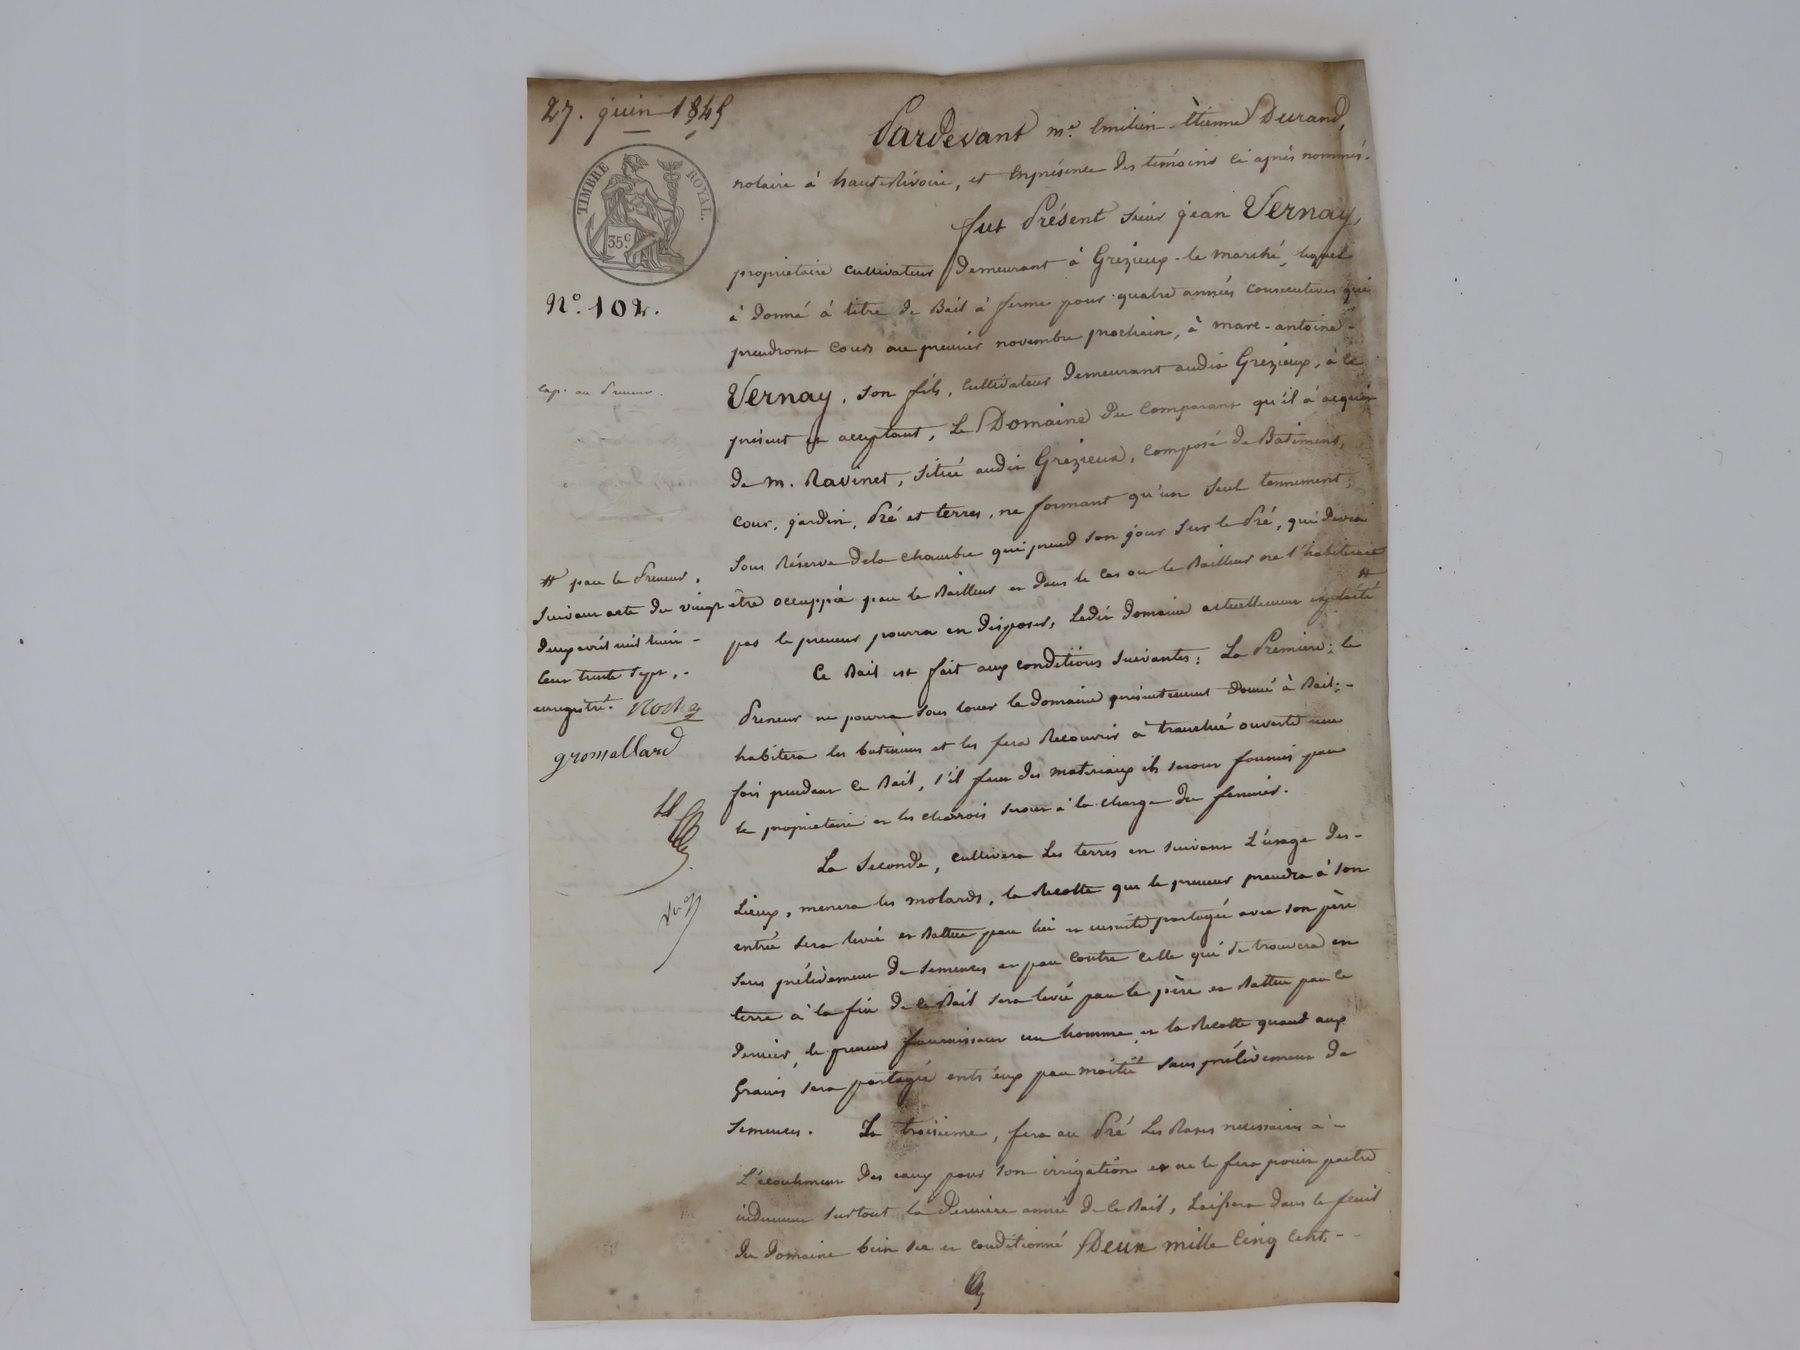 27. juin 1845
TIMBRE ROYAL.
35 c.
N.° 102.
Pardevant m.e Emilien-Étienne Durand,
notaire à hauterivoire, et Enprésence des témoins ci après nommés.
fut Présent sieur jean Vernay,
propriétaire cultivateur demeurant à Grézieux-le marché, lequel
à donné à titre de Bail à ferme pour quatre années consecutives qui
prendront cours au premier novembre prochain, à marc-antoine-
Exp. au Preneur.
Vernay, son fils, cultivateur demeurant audit Grezieux, à ce
présent et acceptant, Le Domaine du Comparant qu'il à acquis
de m. Ravinet, situé audit Grézieux, composé de Batiments,
cour, jardin, Pré et terres, ne formant qu'un seul tennement;
sous Réserve dela chambre qui prend son jour sur le Pré, qui devra
être occuppée par le Bailleur et dans le cas ou le Bailleur ne l'habiterait
pas le preneur pourra en disposer, Ledit domaine actuellement exploité #
# par le Preneur,
suivant acte du vingt
deux avril mil huit-
cent trente sept,-
enregistré.
gromollard
Ce Bail est fait aux conditions suivantes: La Premiere; le
Preneur ne pourra sous louer le domaine présentement donné à Bail;-
habitera les batiments et les fera Recouvrir à tranchée ouverte une
fois pendant ce Bail, s'il faut des materiaux ils seront fournis par
le propriétaire et les charrois seront à la charge du fermier.
La Seconde, cultivera Les terres en suivant L'usage des-
Lieux, menera les molards, la Récolte que le preneur prendra à son
entrée sera levée et Battue par lui et ensuite partagée avec son père
sans prélèvement de semences et par contre celle qui se trouvera en
terre à la fin de ce Bail sera levée par le père et Battue par ce
dernier, le preneur fournissant un homme, et la Récolte quand aux
Grains sera partagée entr'eux par moitié sans prélèvement de
semences. La troisieme, fera au Pré Les Rases necessaires à-
L'écoulement des eaux pour son irrigation et ne le fera point paitre
indument surtout la derniere année de ce Bail, Laissera dans le fenil
du domaine bien sec et conditionné Deux mille Cinq Cents--